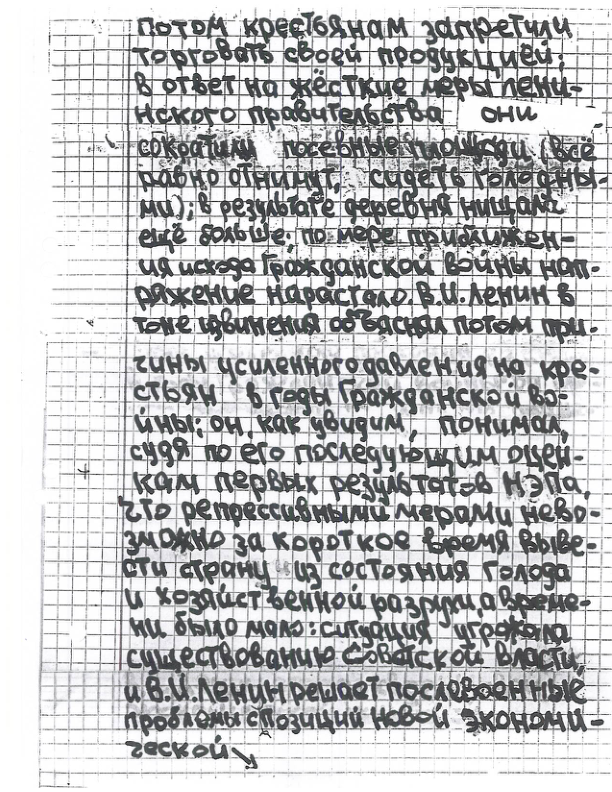 потом крестьянам запретили
торговать своей продукцией;
в ответ на жёсткие меры лени-
нского правительства они
сократили посевные площади (всё
равно отнимут, сидеть голодны-
ми); в результате деревня нищала
ещё больше; по мере приближен-
ия исхода Гражданской войны нап-
ряжение нарастало. В.И. Ленин в
тоне извинения объяснял потом при-
чины усиленного давления на кре-
стьян в годы Гражданской во-
йны; он, как увидим, понимал,
судя по его последующим оцен-
кам первых результатов НЭПа,
что репрессивными мерами нево-
зможно за короткое время выве-
сти страну из состояния голода
и хозяйственной разрухи, а време-
ни было мало: ситуация угрожала
существованию Советской власти,
и В.И. Ленин решает послевоенные
проблемы с позиций новой экономи-
ческой